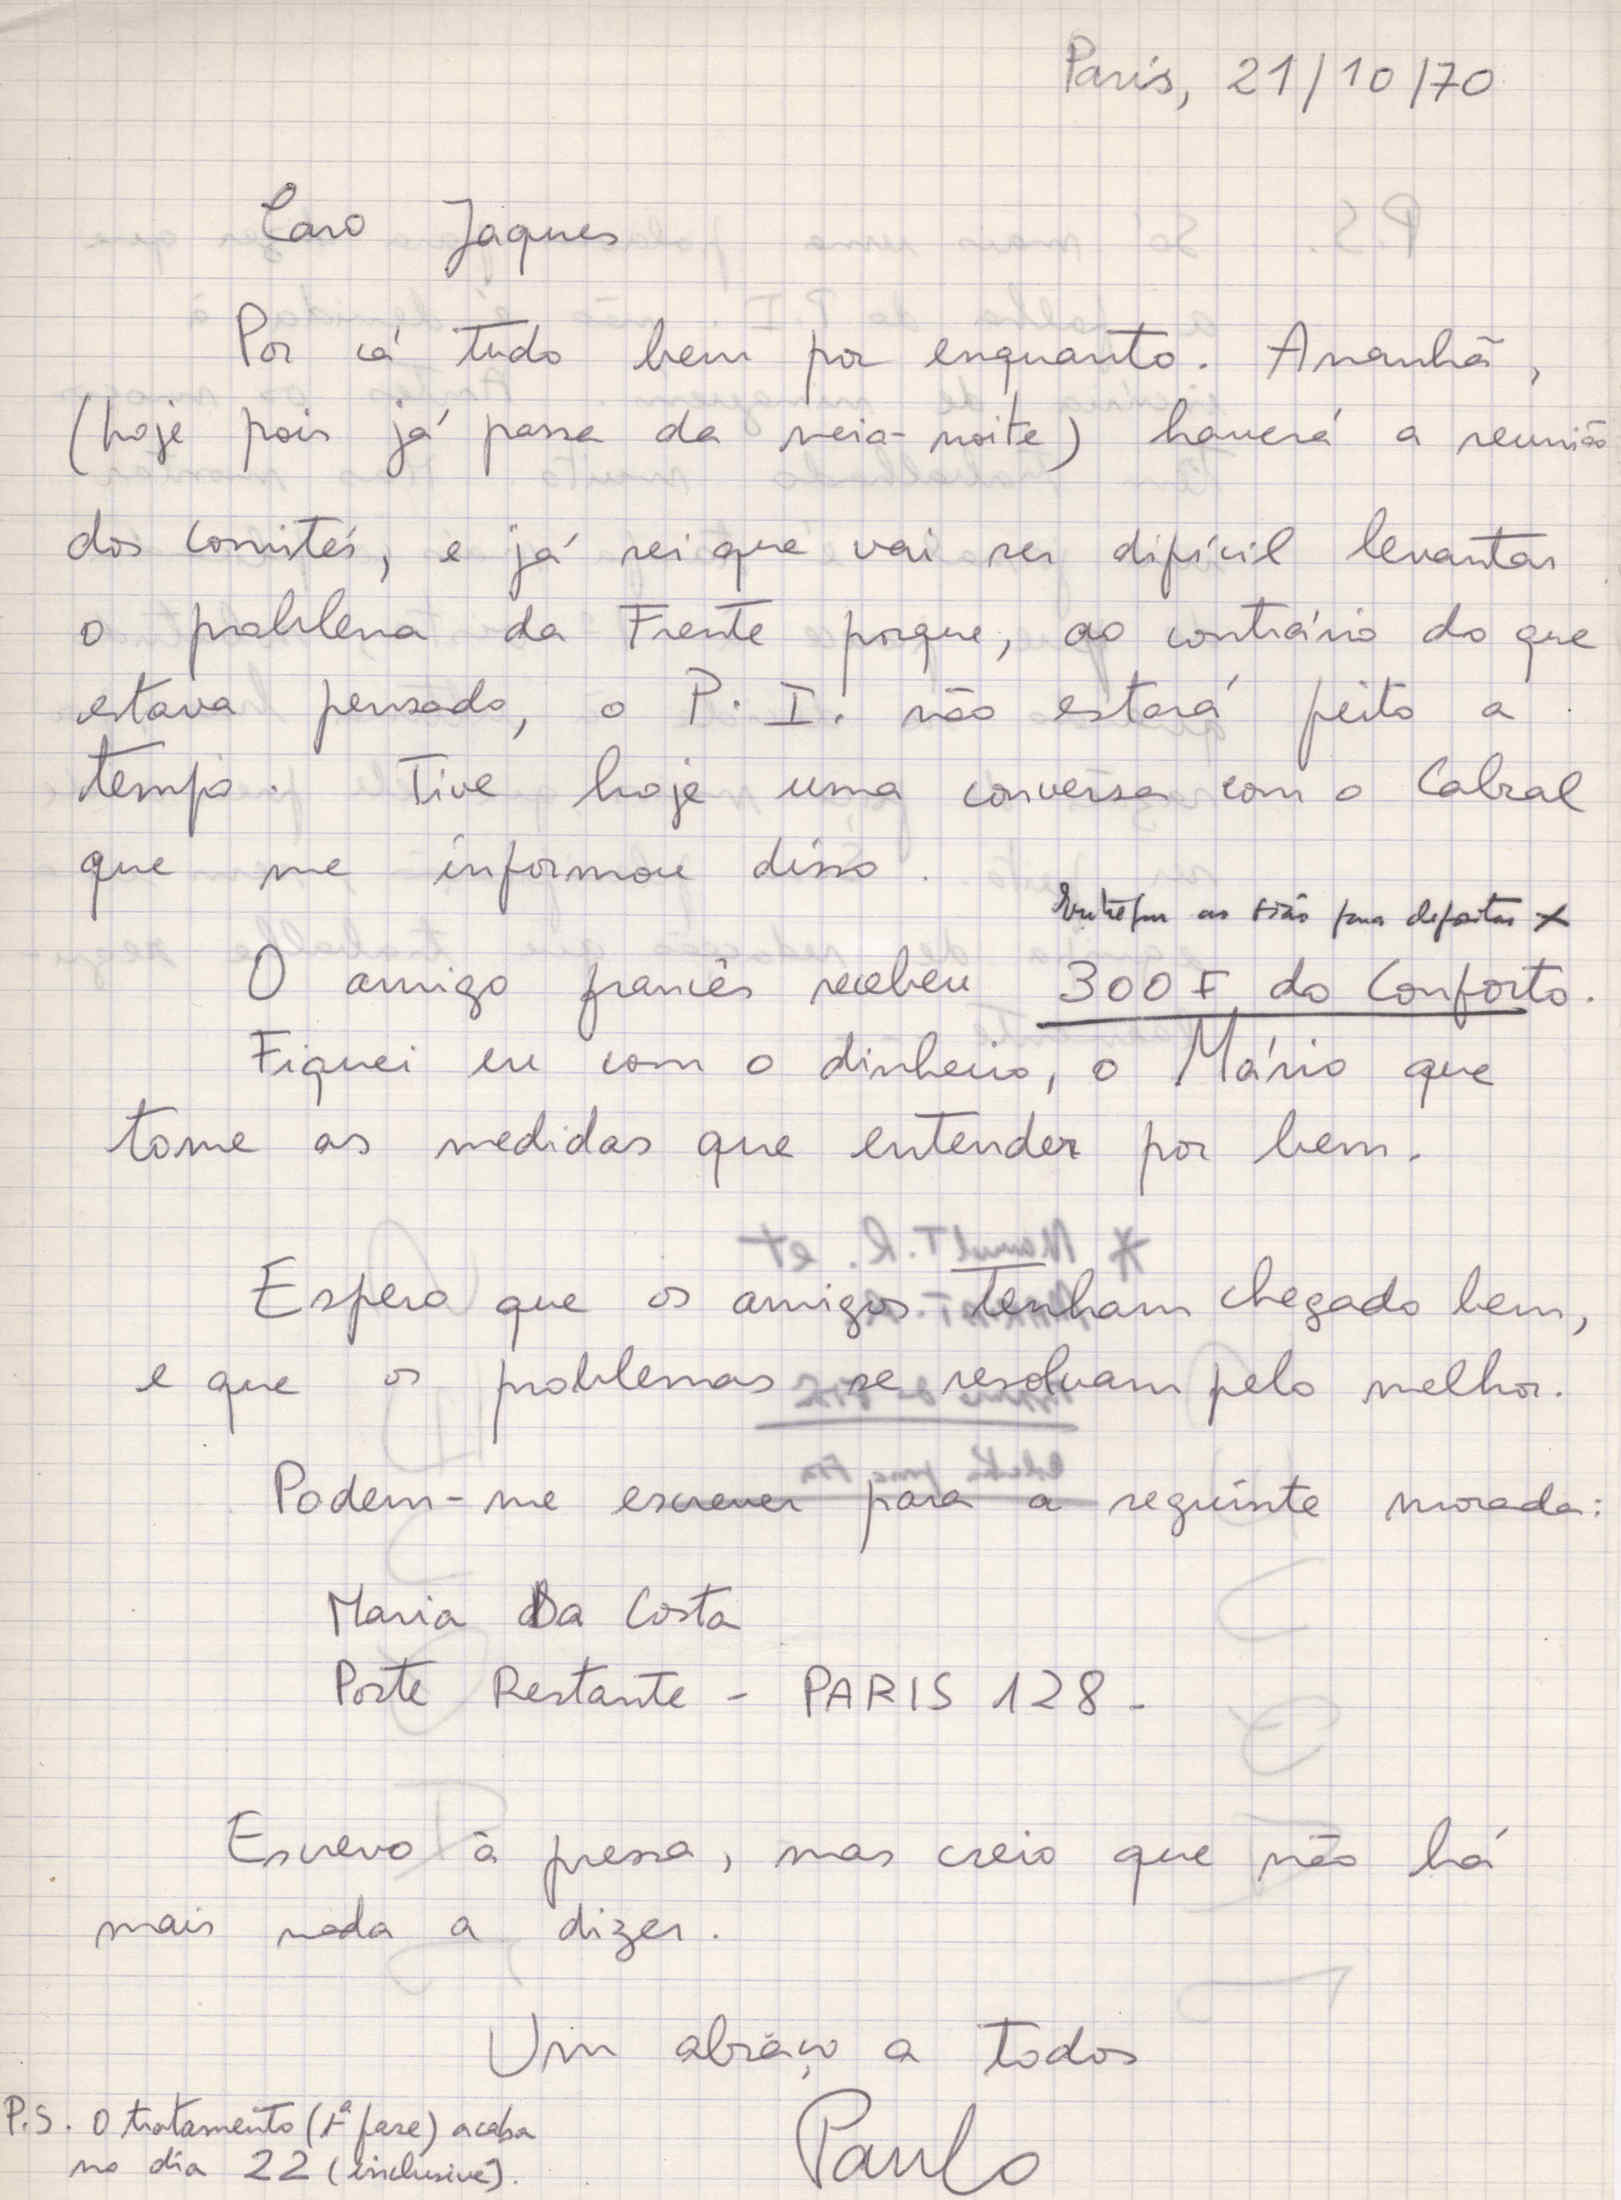 Paris, 21/10/70
Caro Jaques
Por cá tudo bem por enquanto. Amanhã,
(hoje pois já passa da meia-noite) haverá a reunião
dos comités, e já sei que vai ser difícil levantar
o problema da Frente porque, ao contrário do que
estava pensado, o P. I. não estará feito a
tempo. Tive hoje uma conversa com o Cabral
que me informou disso.
para depositar X
O amigo francês recebeu 300 F do Conforto.
Fiquei eu com o dinheiro, o Mário que
tome as medidas que entender por bem.
Espero que os amigos tenham chegado bem,
e que os problemas se resolvam pelo melhor.
Podem-me escrever para a seguinte morada:
Maria Da Costa
Poste Restante - PARIS 128 -
Escrevo à pressa, mas creio que não há
mais nada a dizer.
Um abraço a todos
Paulo
P.S. O tratamento (1ª fase) acaba
no dia 22 (inclusivé).